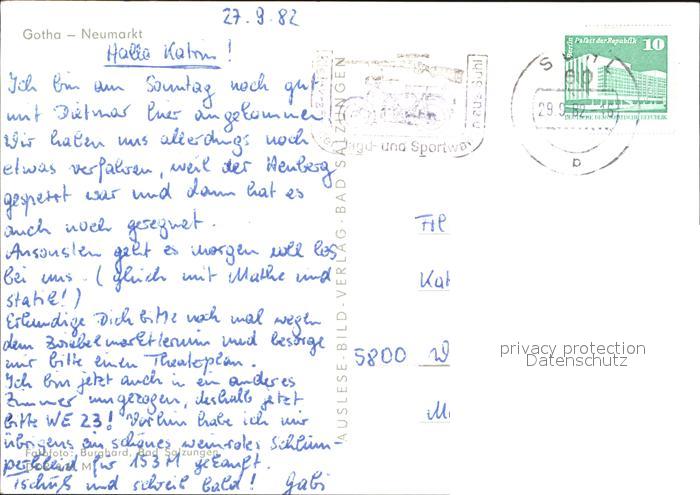 27.9.82
Gotha – Neumarkt
Hallo Katrin!
Ich bin am Sonntag noch gut
mit Dietmar hier angekommen
Wir haben uns allerdings noch
etwas verfahren, weil der
gesperrt war und dann hat es
auch noch geregnet.
Ansonsten geht es morgen voll los
bei uns. (gleich mit Mathe und
statik!)
Erkundige Dich bitte noch mal wegen
dem Zwiebelmarkttermin und besorge
mir bitte einen Theaterplan.
Ich bin jetzt auch in ein anderes
Zimmer umgezogen, deshalb jetzt
bitte WE 23! Vorhin habe ich mir
übrigens ein schönes weinrotes Schlum-
perkleid für 153 M gekauft.
Tschüß und schreib bald! Gabi
Farbfoto: Burghard, Bad Salzungen
AUSLESE-BILD-VERLAG · BAD SALZUNGEN
Jagd- und Sportwa
SUHL
29.9.82
b
Berlin Palast der Republik 10
DEUTSCHE DEMOKRATISCHE REPUBLIK
Frl
Kat
5800 W
M
privacy protection
Datenschutz